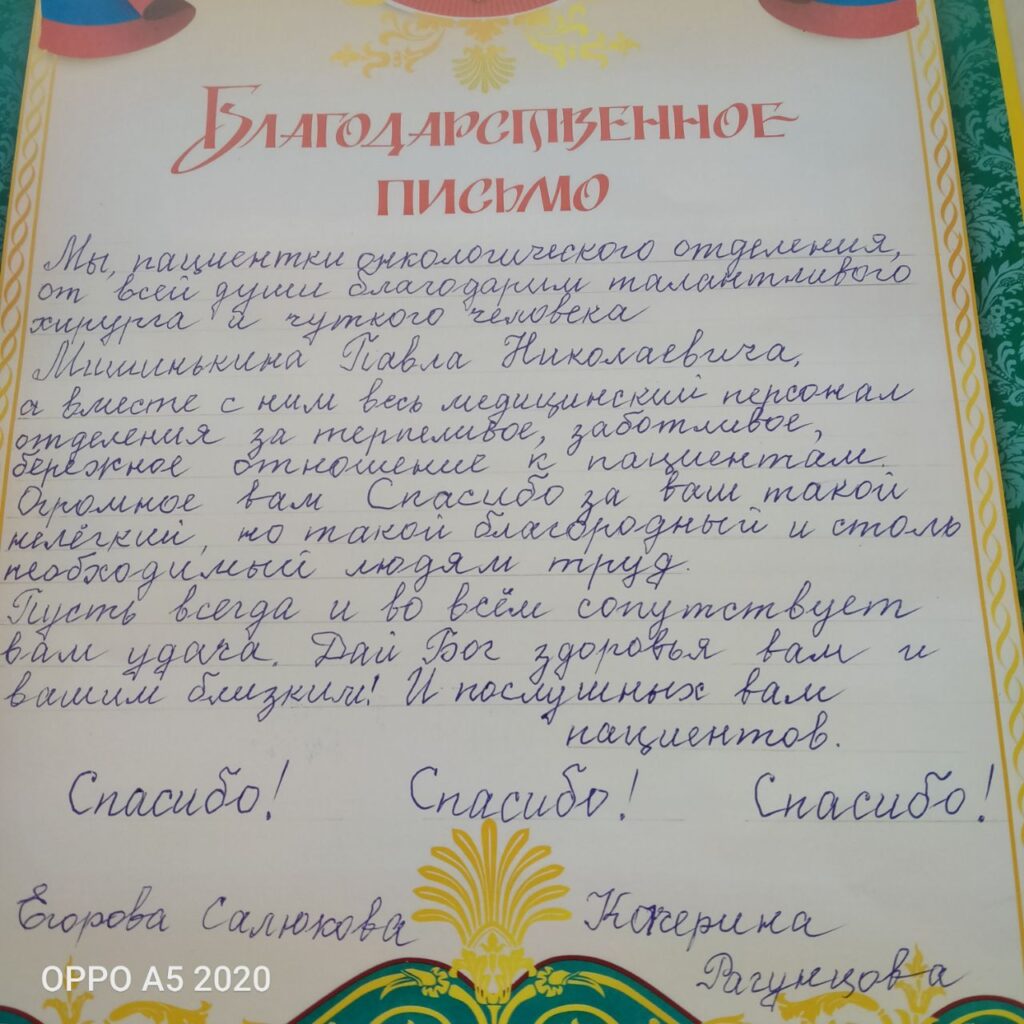 Благодарственное
письмо
Мы, пациентки онкологического отделения,
от всей души благодарим талантливого
хирурга и чуткого человека
Мишинькина Павла Николаевича,
а вместе с ним весь медицинский персонал
отделения за терпеливое, заботливое,
бережное отношение к пациентам.
Огромное вам Спасибо за ваш такой
нелёгкий, но такой благородный и столь
необходимый людям труд.
Пусть всегда и во всём сопутствует
вам удача. Дай Бог здоровья вам и
вашим близким! И послушных вам
пациентов.
Спасибо! Спасибо! Спасибо!
Егорова Салюкова Кочерина
Рагунцова
OPPO A5 2020